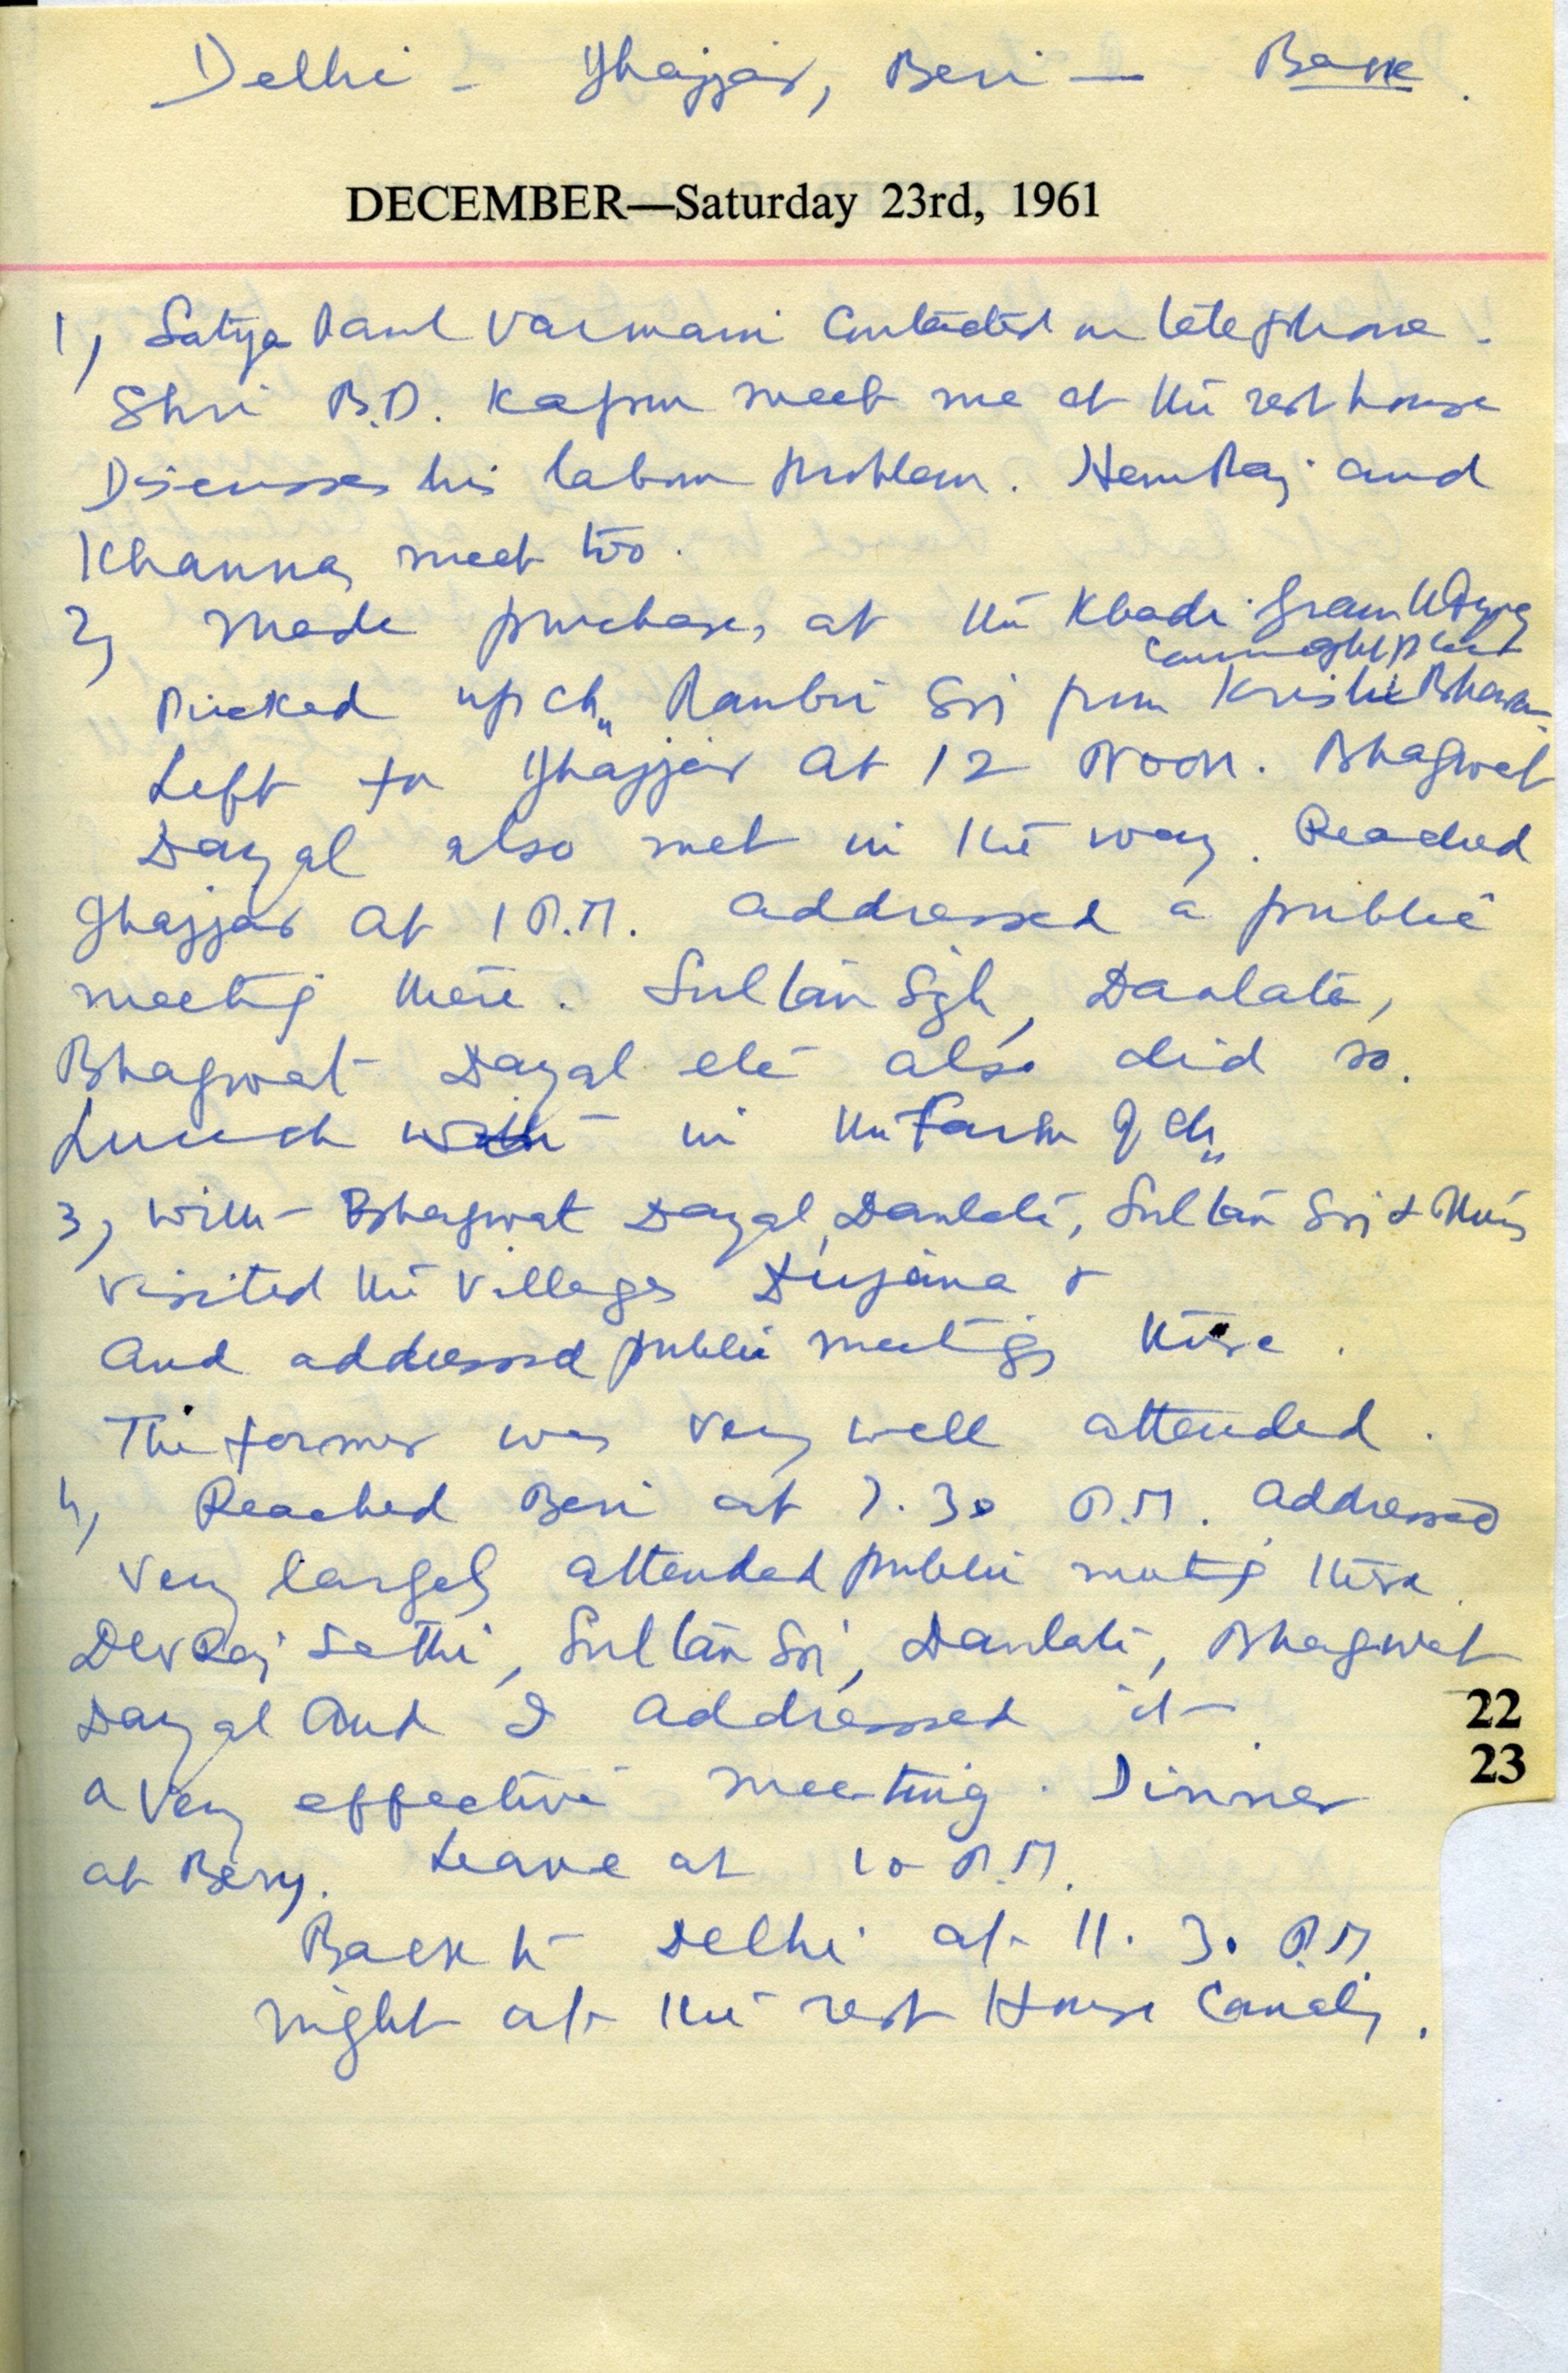 Delhi - Jhajjar, Beri — Back.
DECEMBER—Saturday 23rd, 1961
1, Satya Paul Varmani Contacted on telephone.
Shri B.D. Kapur meet me at the rest house
Discusses his labour problem. HemRaj and
Khanna meet too.
2, Made purchases at the Khadi Gram Udyog
Connaught place
Picked up Ch,, Ranbir from Krishi Bhavan
Left for Jhajjar at 12 Noon. Bhagwat
Dayal also met in the way. Reached
Jhajjar at 1 P.M. addressed a public
meeting there. Sultan Sgh, Daulata,
Bhagwat Dayal etc also did so.
Lunch in the farm of Ch,,
3, With Bhagwat Dayal, Daulata, Sultan &
visited the Villages Dujana &
And addressed public meetings there.
The former was very well attended.
4, Reached Beri at 7.30 P.M. addressed
very largely attended public meeting there.
DevRaj Sethi, Sultan, Daulata, Bhagwat
Dayal And I addressed it.
a very effective meeting. Dinner
at Bery. Leave at 10 P.M.
Back to Delhi at 11.30 P.M.
night at the rest House Canal.
22
23